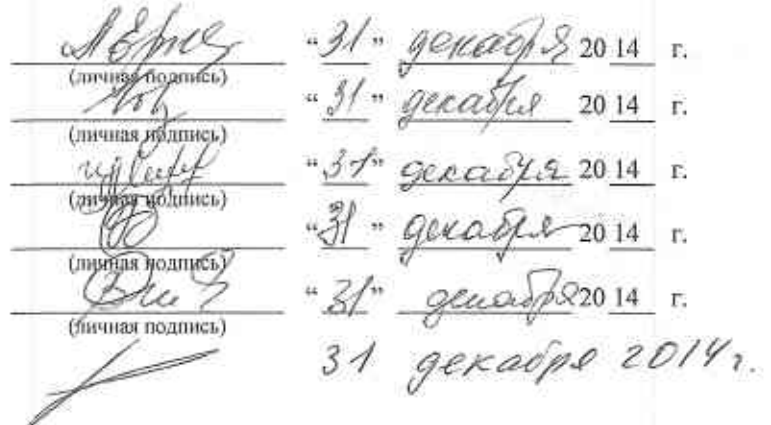 "31" декабря 20 14 г.
(личная подпись)
"31" декабря 20 14 г.
(личная подпись)
"31" декабря 20 14 г.
(личная подпись)
"31" декабря 20 14 г.
(личная подпись)
"31" декабря 20 14 г.
(личная подпись)
31 декабря 2014 г.